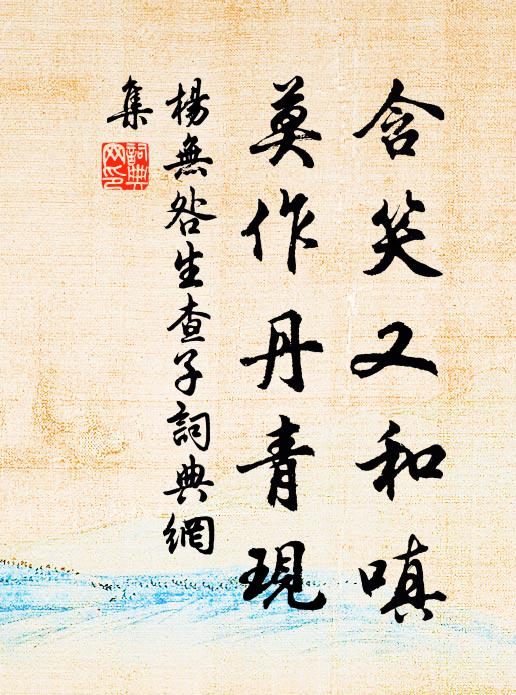 含笑又和嗔
莫作丹青現
楊無咎生查子詞典網
集
詞典
网印